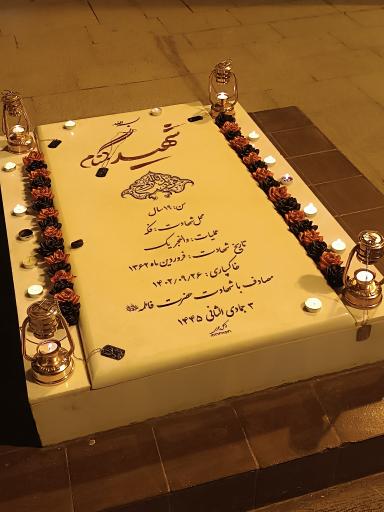 شهید گمنام
سن: ۱۹ سال
محل شهادت: فکه
عملیات: والفجر یک
تاریخ شهادت: فروردین ماه ۱۳۶۲
خاکسپاری: ۱۴۰۲/۰۹/۲۶
مصادف با شهادت حضرت فاطمه
۳ جمادی الثانی ۱۴۴۵